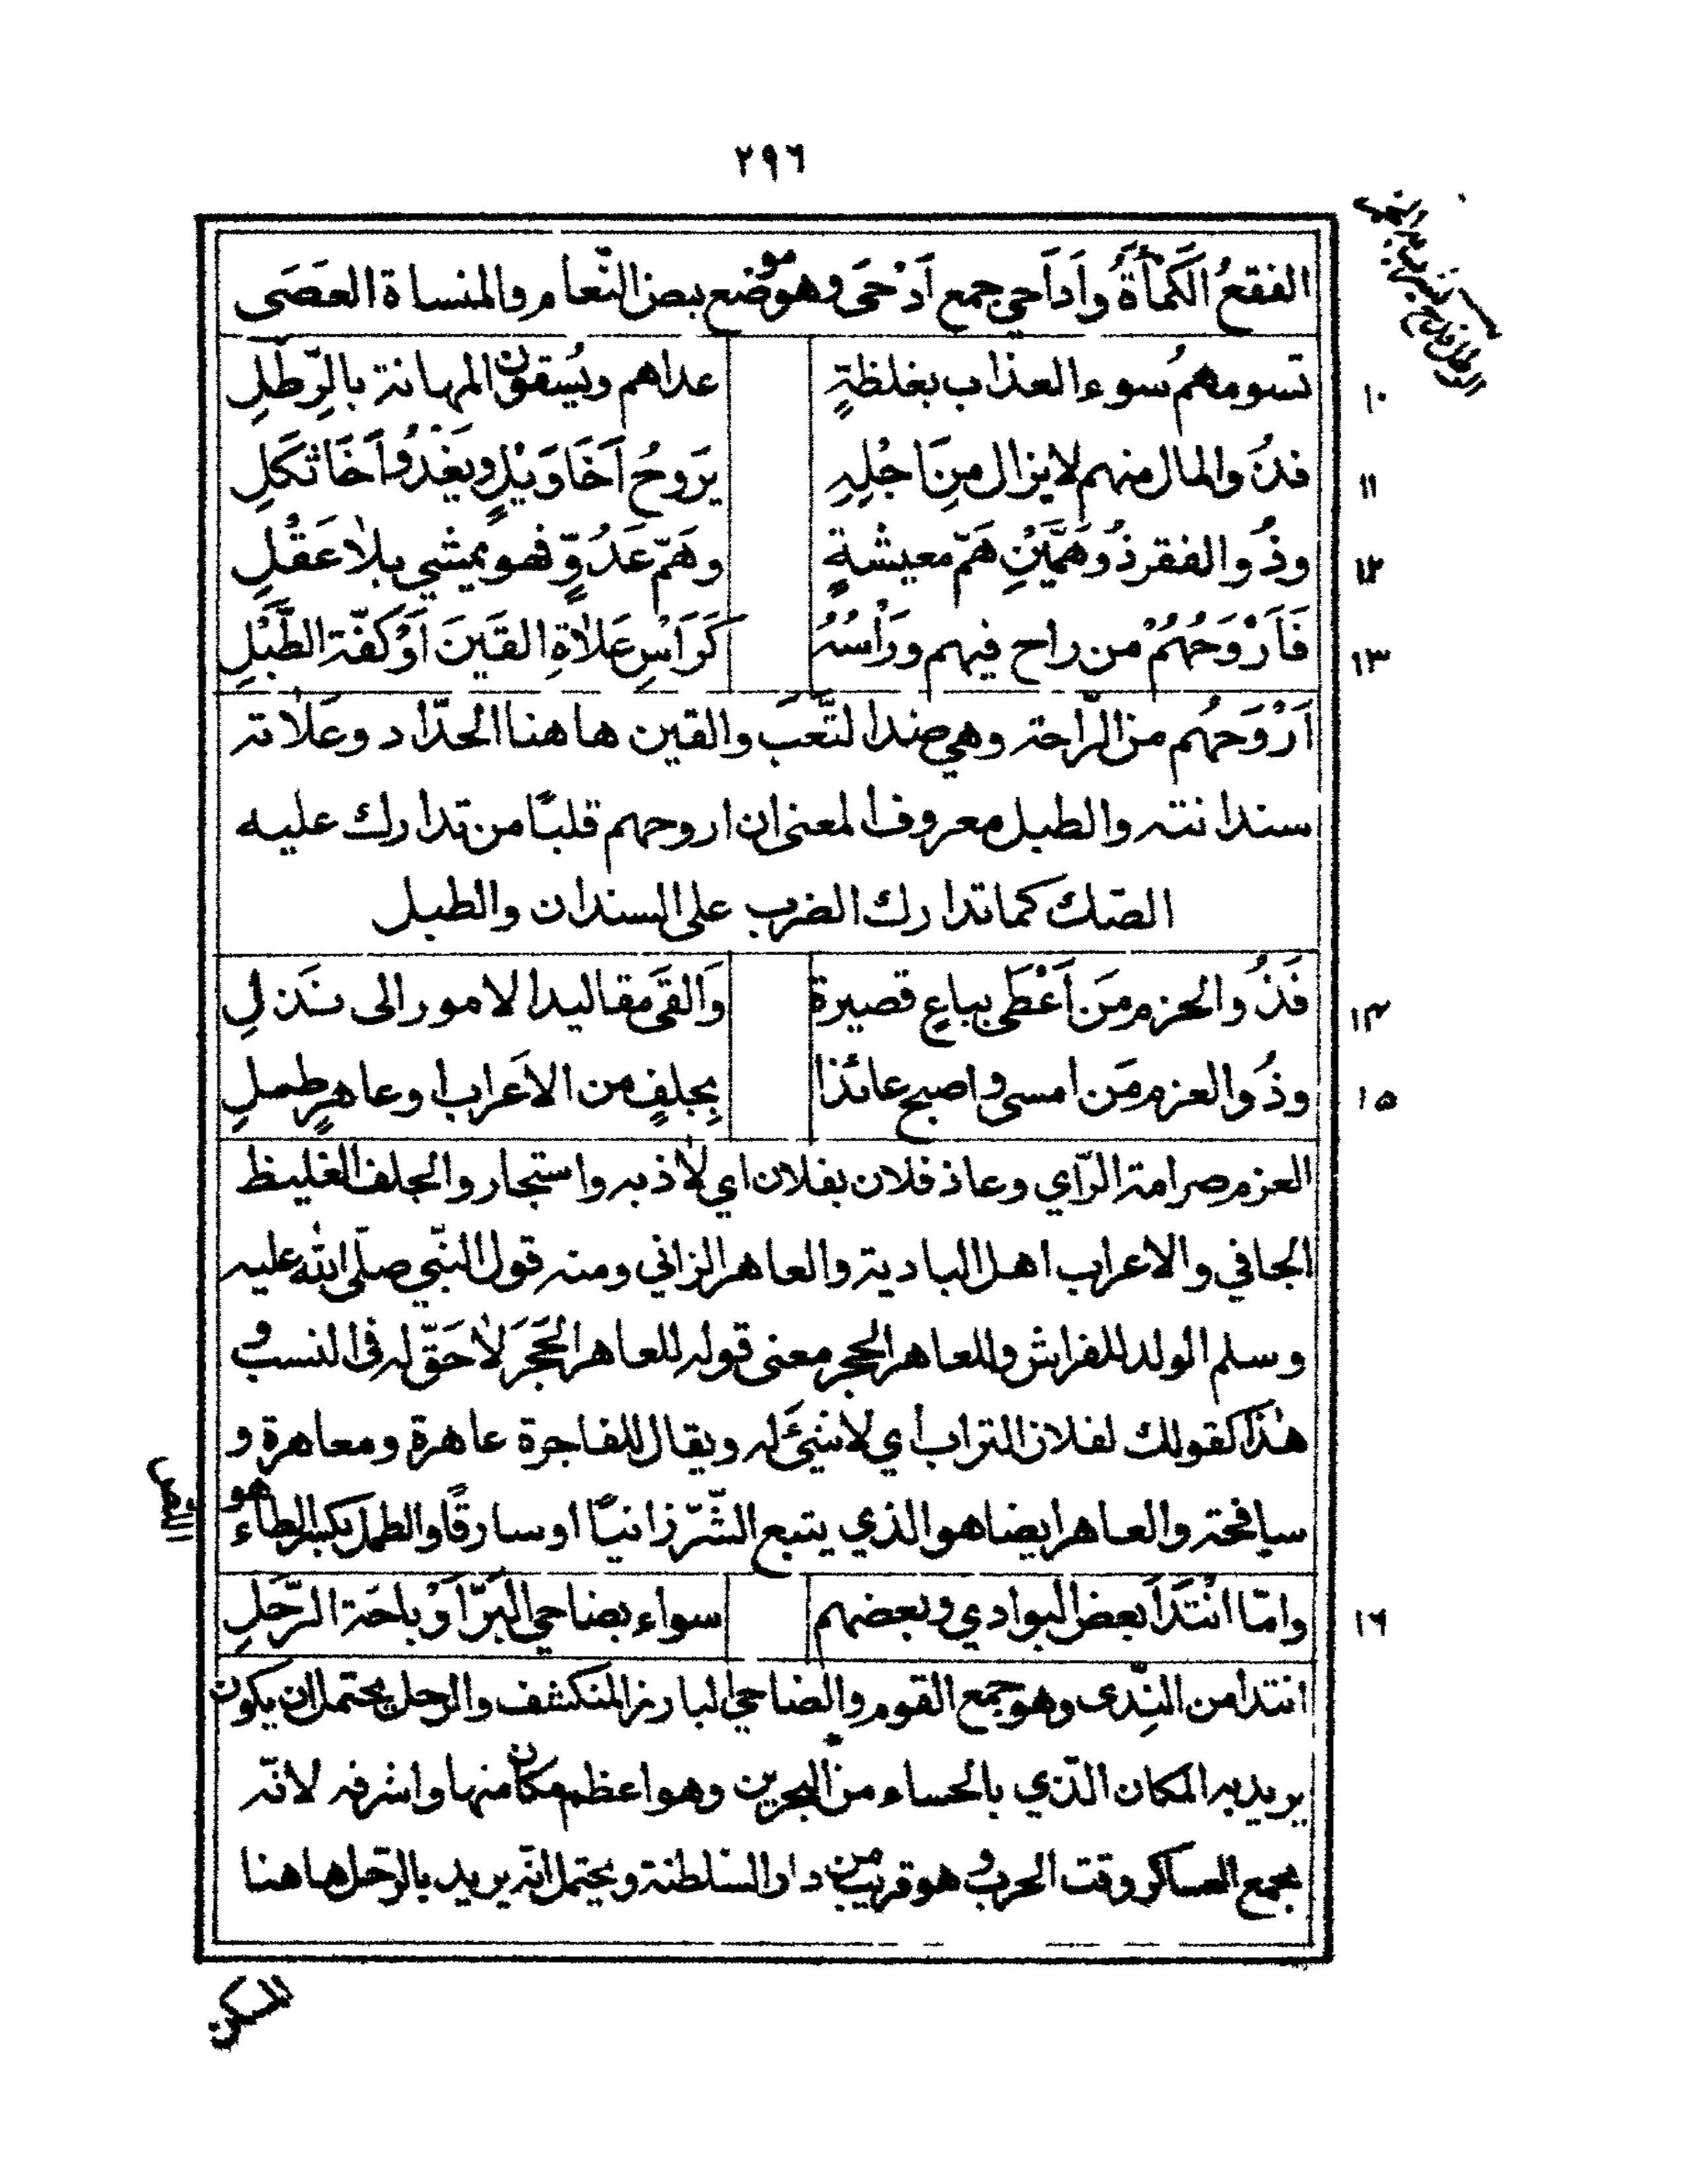 ٢٩٦
الفقعُ الَكَمْأَةُ وأَدَاَحي جمع اَدْحَى وهو موضع بيض النّعام والمنساة العصَى
١٠ تسومهمُ سوء العذاب بغلظةٍ عداهم ويُسقون المهانة بالرِّطلِ
١١ فذُوالمال منهم لا يزال مِنَ اجْلِهِ يَروحُ أَخَا وَيْلٍ ويَغْدُو أَخَا ثكَلِ
١٢ وذُو الفقر ذُو هَمَّيْنِ هَمّ معيشةٍ وهَمّ عَدُوٍّ فهو يمشي بلاٰ عَقْلِ
١٣ فَأَرْوَحُهُمْ من راح فيهم ورَأْسُهُ كَرَأْسِ عَلاٰةِ القَينَ أَوْ كَفّة الطَّبْلِ
أَرْوَحُهم من الرّاحة وهي ضد التّعَب والقين هاهنا الحدّاد وعَلاٰته
سندانته والطبل معروف المعنى ان اروحهم قلبًا من تدارك عليه
الصّك كما تدارك الضرب على السندان والطبل
١٤ فَذُو الحزم مَن أَعْطَى بباعٍ قصيرة وَالقَى مقاليد الامور الى نَذلِ
١٥ وذُو العزم مَن امسى واصبح عائذا بِجلفٍ من الاَعراب او عاهرٍ طملِ
العزم صرامة الرّاي وعاذ فلان بفلان اي لاٰذ به واستجار والجلف الغليظ
الجافي والاعراب اهل البادية والعاهر الزاني ومنه قول النّبي صلّى الله عليه
وسلم الولد للفراش وللعاهر الحجر معنى قوله للعاهر الحَجَرَ لاٰ حَقّ له في النسب و
هٰذا كقولك لفلان التراب أي لا شَيئَ له ويقال للفاجرة عاهرة ومعاهرة و
سافحة والعاهر ايضا هو الذي يتبع الشّرّ زانيًا او سارقًا والطمل بكسر الطاء هو
اللص
١٦ وامّا انْتَدَأَ بعض البوادي وبعضهم سواء بضاحي البَرّ أَوْ باحَة الرّحَلِ
انتدا من النِّدى وهو جمع القوم والضاحي البارز المنكشف والرحل يحتمل ان يكون
يريد به المكان الذّي بالحساء من البحرين وهو اعظم مكان منها واشرفه لانّه
مجمع العساكر وقت الحرب و هو قريب من دار السّلطنة ويحتمل انّه يريد بالرّحل هاهنا
المسكن